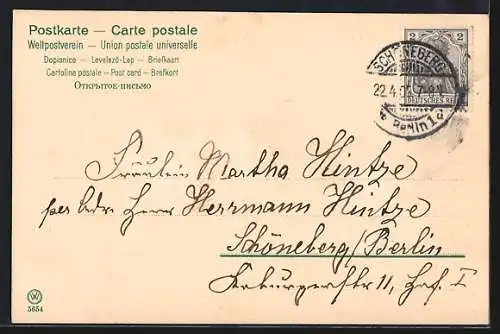 Postkarte — Carte postale
Weltpostverein — Union postale universelle
Dopisnice — Levelező-Lap — Briefkaart
Cartolina postale — Post card — Brefkort
Открытое письмо
2 2
DEUTSCHES REICH
SCHÖNEBERG
22.4.05. 7-8 N.
b. Berlin 1
Fräulein Martha Hintze
per Adr. Herrn Herrmann Hintze
Schöneberg/Berlin
11, Hof. I
W
5654